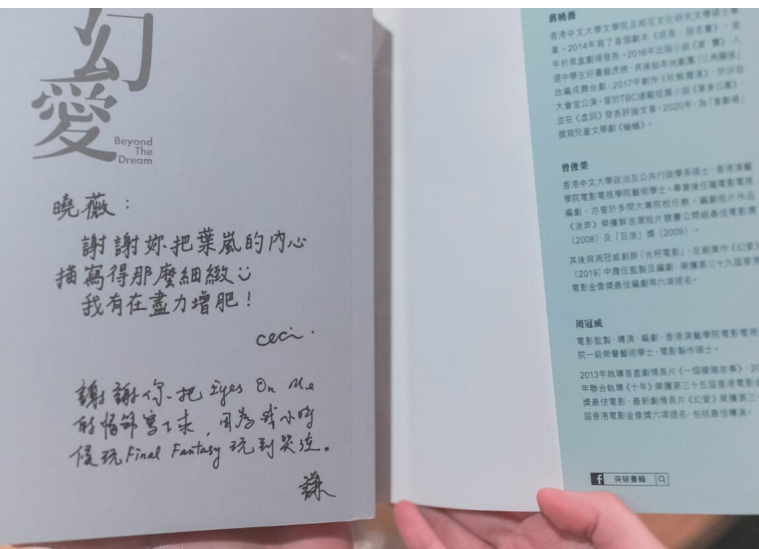 幻
愛
Beyond
The
Dream
曉薇：
謝謝妳把葉嵐的內心
描寫得那麼細緻
我有在盡力增肥！
ceci.
謝謝你把 Eyes On Me
的情節寫下來，因為我小時
候玩Final Fantasy 玩到哭泣。
謙
蔣曉薇
香港中文大學文學院及相互文化研究文學碩士畢
業。2014年寫了首個劇本《成長．排名書》，
年於黑盒劇場發表。2016年出版小說《家．寶》，入
選中學生好書龍虎榜，其後由本地劇團「三角關係」
改編成舞台劇；2017年創作《秋鯨擱淺》，於沙田
大會堂公演。曾於TBC連載短篇小說《單身公寓》，
並在《虛詞》發表評論文章。2020年，為「普劇場」
撰寫兒童文學劇《蛐蛐》。
曾俊榮
香港中文大學政治及公共行政學系碩士、香港演藝
學院電影電視學院藝術學士。畢業後任職電影電視
編劇，亦曾於多間大專院校任教。編劇短片作品
《浪奔》榮獲鮮浪潮短片競賽公開組最佳電影獎
（2008）及「巨浪」獎（2009）。
其後與周冠威創辦「光籽電影」，在創業作《幻愛》
（2019）中擔任監製及編劇，榮獲第三十九屆香港
電影金像獎最佳編劇等六項提名。
周冠威
電影監製、導演、編劇，香港演藝學院電影電視
院一級榮譽藝術學士、電影製作碩士。
2013年執導首套劇情長片《一個複雜故事》，20
年聯合執導《十年》榮獲第三十五屆香港電影金
獎最佳電影，最新劇情長片《幻愛》榮獲第三
屆香港電影金像獎六項提名，包括最佳導演。
f 突破書籍